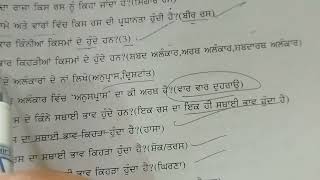 ਦਾ ਰਾਜਾ ਕਿਸ ਰਸ ਨੂੰ ਕਿਹਾ ਜਾਂਦਾ ਹੈ?
ਅਤੇ ਵਾਰਾਂ ਵਿੱਚ ਕਿਸ ਰਸ ਦੀ ਪ੍ਰਧਾਨਤਾ ਹੁੰਦੀ ਹੈ?(ਬੀਰ ਰਸ)
ਕਾਰ ਕਿੰਨੀਆਂ ਕਿਸਮਾਂ ਦੇ ਹੁੰਦੇ ਹਨ?(3)
ਕਿਸਮਾਂ ਦੇ ਹੁੰਦੇ ਹਨ?(ਸ਼ਬਦ ਅਲੰਕਾਰ, ਅਰਥ ਅਲੰਕਾਰ, ਸ਼ਬਦਾਰਥ ਅਲੰਕਾਰ)
ਅਲੰਕਾਰਾਂ ਦੇ ਨਾਂ ਲਿਖੋ(ਅਨੁਪ੍ਰਾਸ,ਦ੍ਰਿਸ਼ਟਾਂਤ)
ਅਲੰਕਾਰ ਵਿੱਚ "ਅਨੁਸਪ੍ਰਾਸ" ਦਾ ਕੀ ਅਰਥ ਹੈ?(ਵਾਰ ਵਾਰ ਦੁਹਰਾਉ)
ਰਸ ਦੇ ਕਿੰਨੇ ਸਥਾਈ ਭਾਵ ਹੁੰਦੇ ਹਨ?(ਇਕ ਰਸ ਦਾ ਇਕ ਹੀ ਸਥਾਈ ਭਾਵ ਹੁੰਦਾ ਹੈ)
ਰਸ ਦਾ ਸਥਾਈ ਭਾਵ ਕਿਹੜਾ ਹੁੰਦਾ ਹੈ?(ਹਾਸਾ)
ਰਸ ਦਾ ਸਥਾਈ ਭਾਵ ਕਿਹੜਾ ਹੁੰਦਾ ਹੈ?(ਸ਼ੋਕ/ਤਰਸ)
ਰਸ ਦਾ ਸਥਾਈ ਭਾਵ ਕਿਹੜਾ ਹੁੰਦਾ ਹੈ?(ਘਿਰਣਾ)